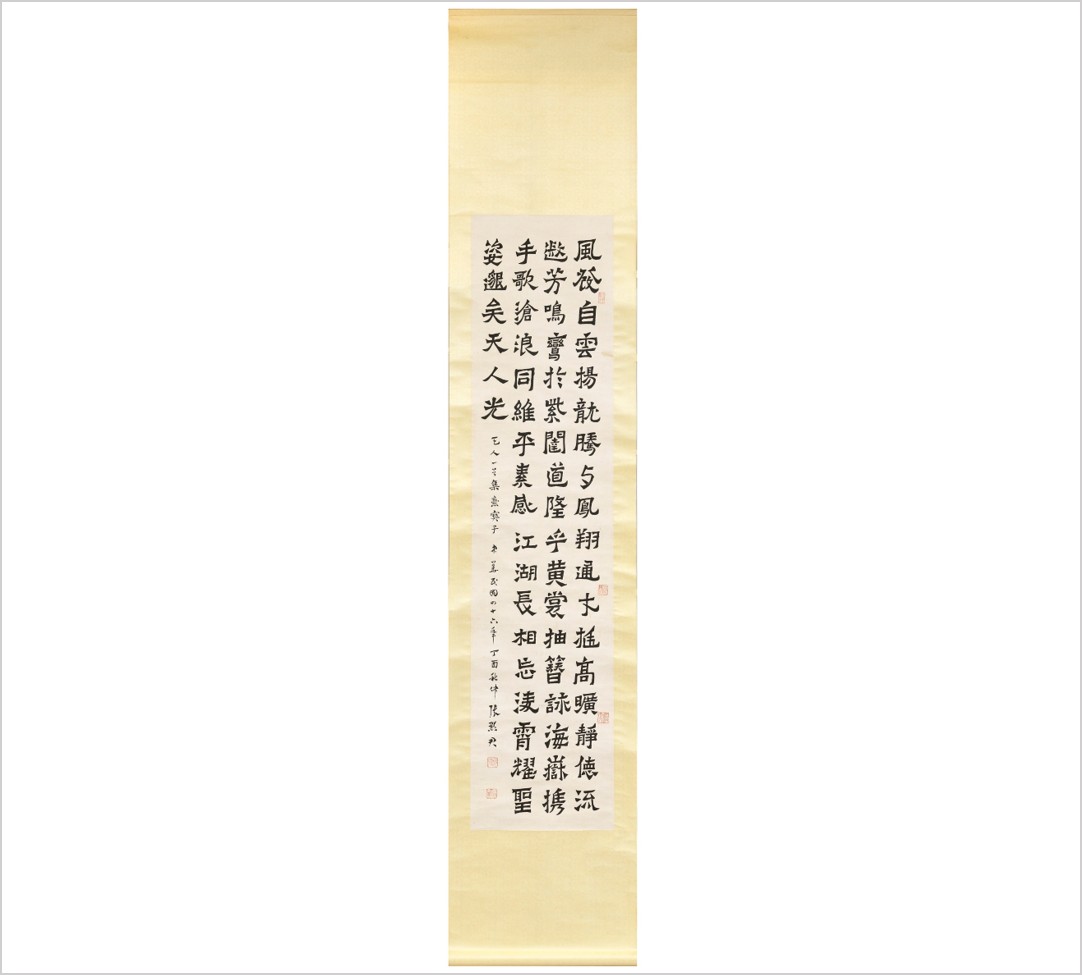 風發自雲揚龍騰与鳳翔通才挺高曠靜德流
懋芳鳴鸞於紫闥道隆乎黃裳抽簪詠海嶽携
手歌滄浪同維平素感江湖長相忘淩霄耀聖
姿邈矣天人光
集 子 中華民國四十六年丁酉秋 張默君